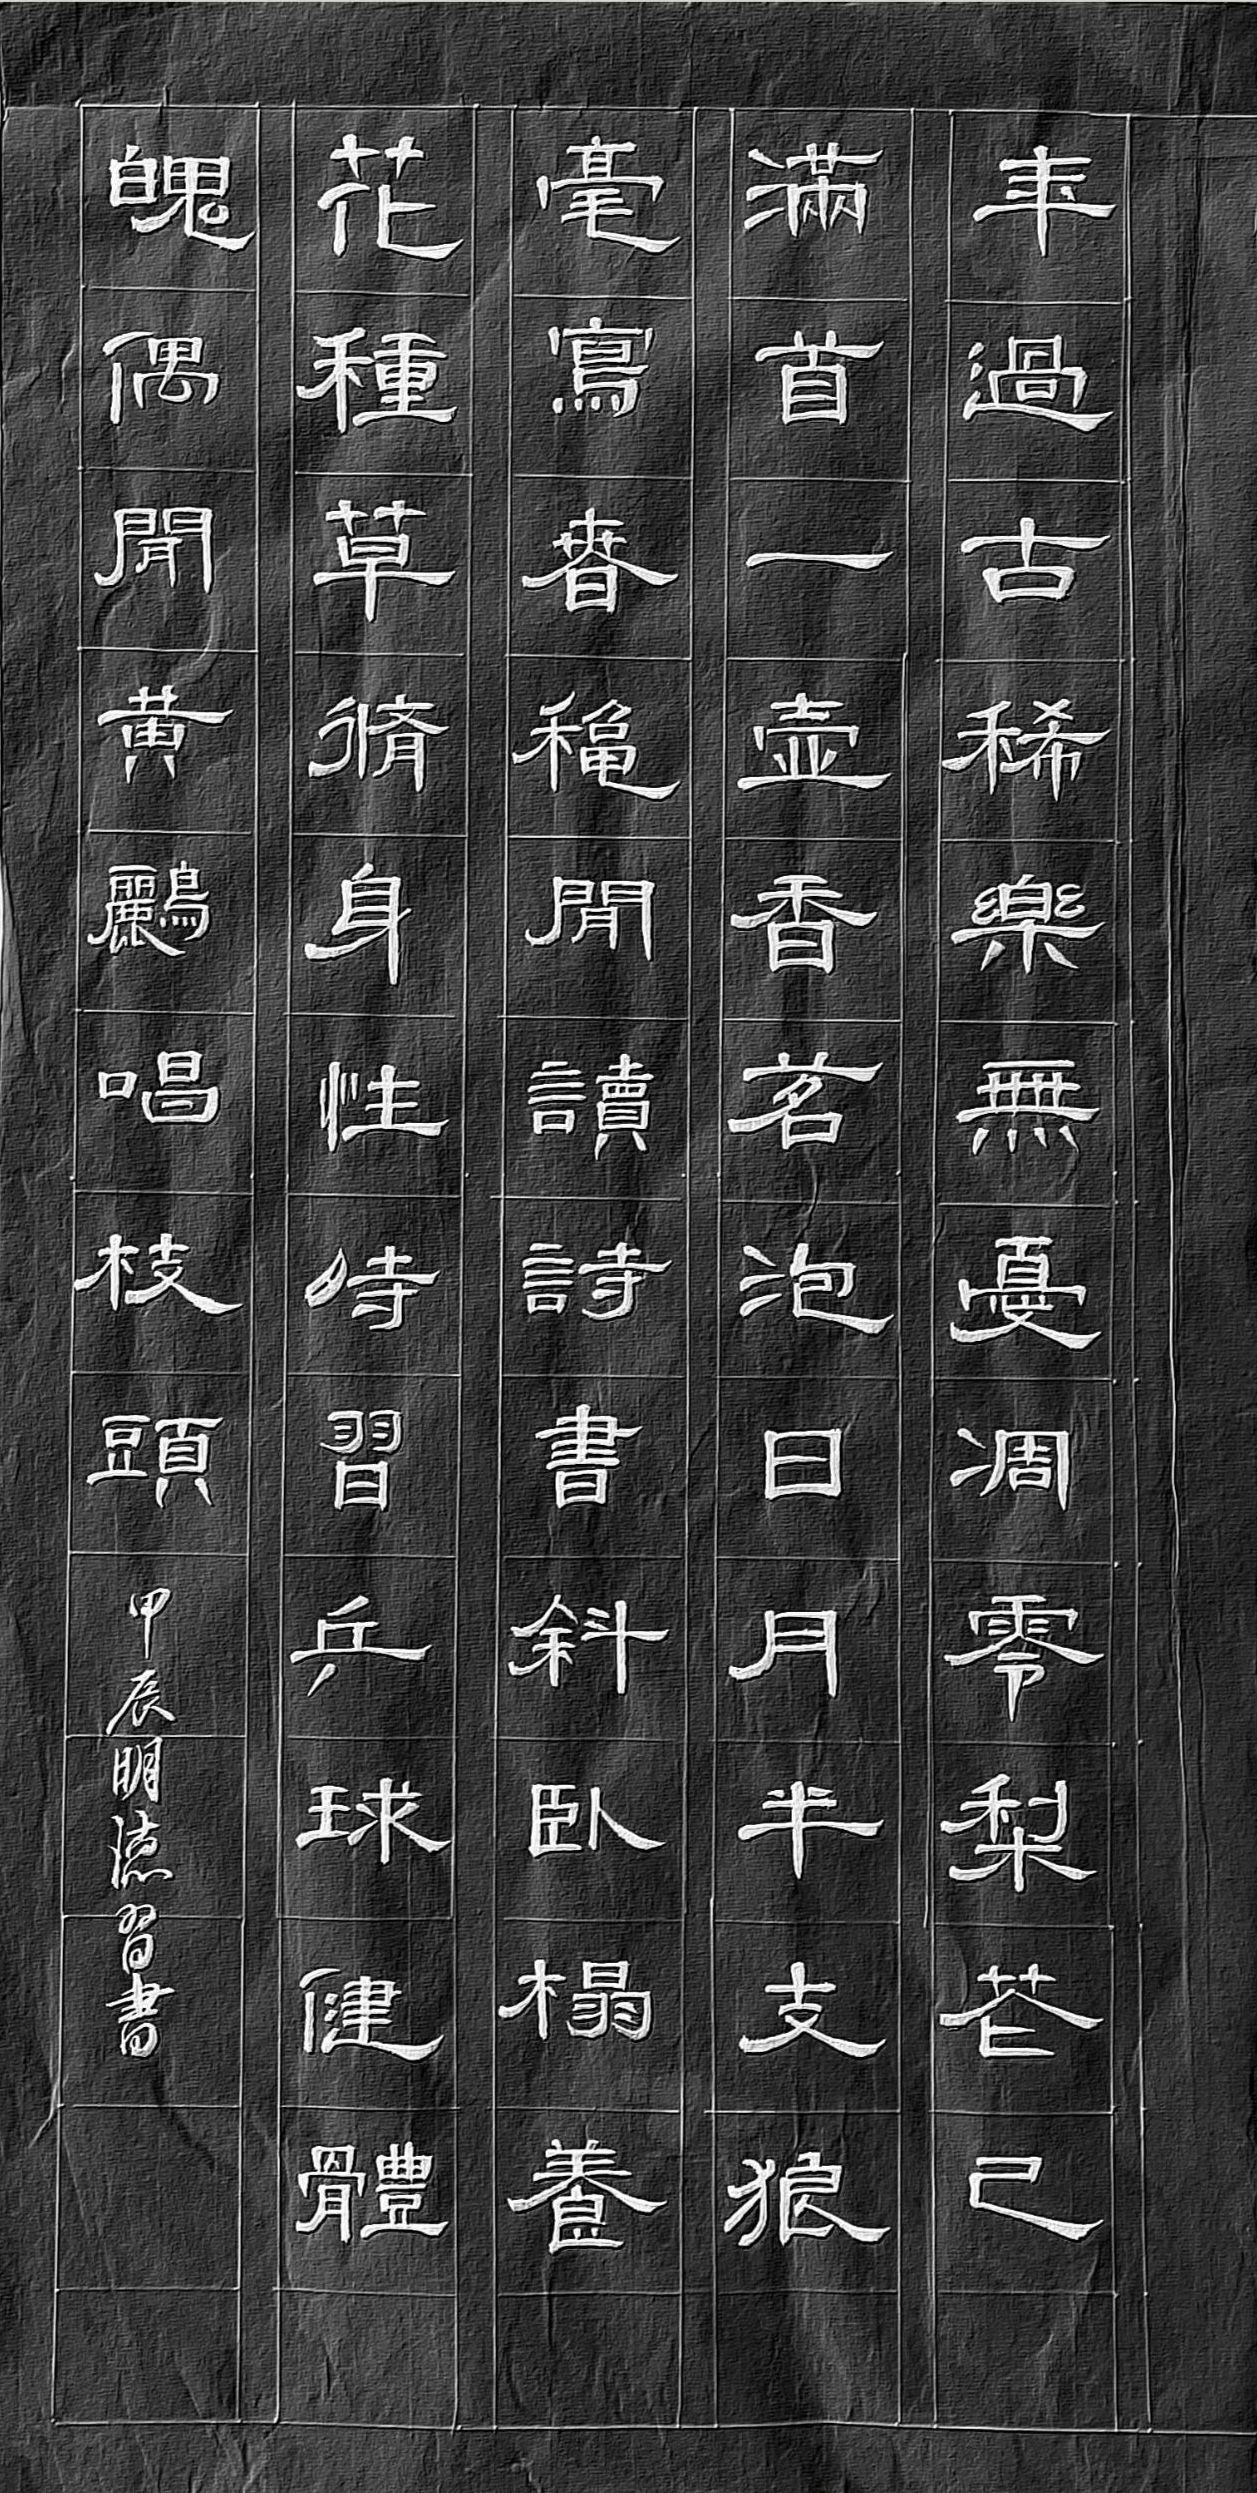 年過古稀樂無憂凋零梨花已
滿首一壺香茗泡日月半支狼
毫寫春穐閒讀詩書斜臥榻養
花種草脩身性時習乒球健體
魄偶聞黃鸝唱枝頭
甲辰明德習書